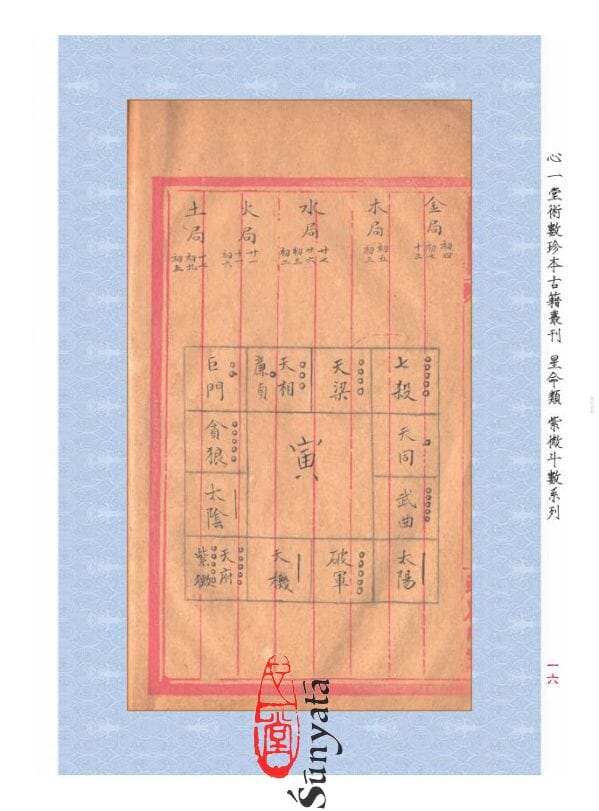 心一堂術數珍本古籍叢刊 星命類 紫微斗數系列
一六
金局
初四
初七
十三
木局
初五
初三
水局
廿七
廿六
初三
初二
火局
廿一
十一
初六
土局
十七
初九
初五
七殺
天梁
天相
廉貞
巨門
天同
寅
貪狼
武曲
太陰
太陽
破軍
天機
天府
紫微
心一堂
Śūnyatā